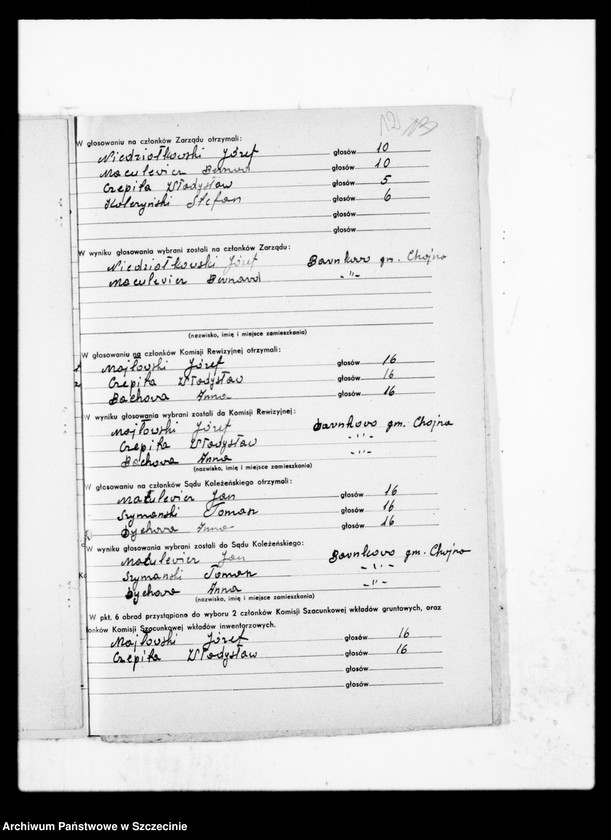 12
W głosowaniu na członków Zarządu otrzymali:
Niedziołkowski Józef głosów 10
Maculevicz Bernard głosów 10
Czepiła Władysław głosów 5
Kolczyński Stefan głosów 6
głosów
głosów
W wyniku głosowania wybrani zostali na członków Zarządu:
Niedziołkowski Józef Barnkowo gm. Chojna
Maculevicz Bernard -"-
(nazwisko, imię i miejsce zamieszkania)
W głosowaniu na członków Komisji Rewizyjnej otrzymali:
1 Majłowski Józef głosów 16
2 Czepiła Władysław głosów 16
Bachova Anna głosów 16
W wyniku głosowania wybrani zostali do Komisji Rewizyjnej:
Majłowski Józef Barnkowo gm. Chojna
Czepiła Władysław -"-
Bachova Anna -"-
(nazwisko, imię i miejsce zamieszkania)
W głosowaniu na członków Sądu Koleżeńskiego otrzymali:
Jan głosów 16
Szymanski Toman głosów 16
Dychova Anna głosów 16
W wyniku głosowania wybrani zostali do Sądu Koleżeńskiego:
Jan Barnkowo gm. Chojna
Szymanski Toman -"-
Dychova Anna -"-
(nazwisko, imię i miejsce zamieszkania)
W pkt. 6 obrad przystąpiono do wyboru 2 członków Komisji Szacunkowej wkładów gruntowych, oraz
łonków Komisji Szacunkowej wkładów inwentarzowych.
Majłowski Józef głosów 16
Czepiła Władysław głosów 16
głosów
głosów
Archiwum Państwowe w Szczecinie